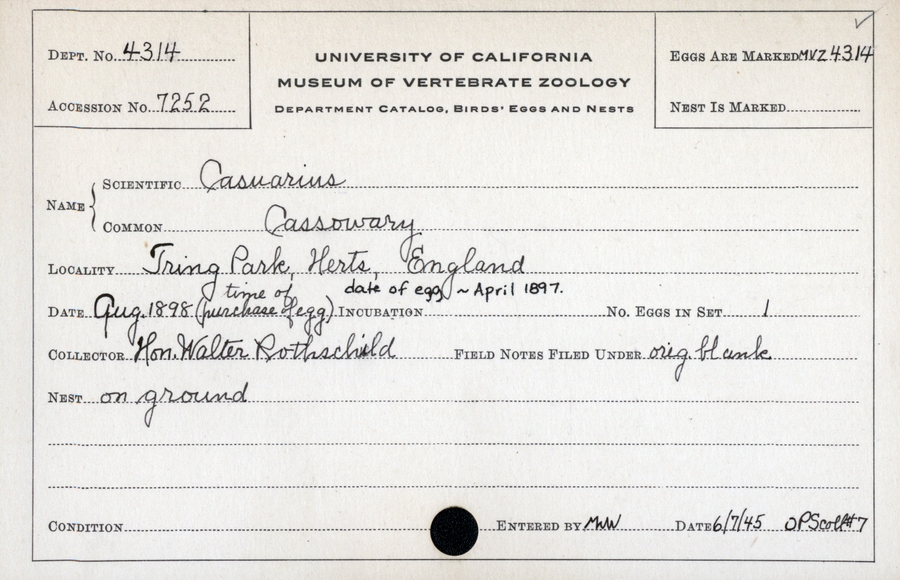 DEPT. No. 4314
UNIVERSITY OF CALIFORNIA
MUSEUM OF VERTEBRATE ZOOLOGY
DEPARTMENT CATALOG, BIRDS' EGGS AND NESTS
EGGS ARE MARKED MVZ 4314
ACCESSION No. 7252
NEST IS MARKED
NAME
SCIENTIFIC Casuarius
COMMON Cassowary
LOCALITY Tring Park, Herts, England
time of date of egg ~ April 1897.
DATE Aug. 1898 (purchase of egg) INCUBATION No. EGGS IN SET 1
COLLECTOR Hon. Walter Rothschild FIELD NOTES FILED UNDER orig. blank
NEST on ground
CONDITION ENTERED BY MWW DATE 6/7/45 OPS coll #7